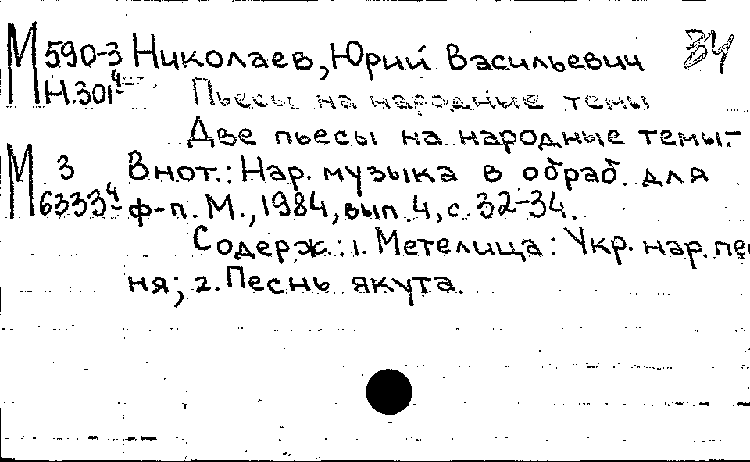 М 590-3 Николаев, Юрий Васильевич 34
Н.301⁴
Пьесы на народные темы
Две пьесы на народные темы.-
М 3 В нот.: Нар. музыка в обраб. для
6333⁴ ф-п. М., 1984, вып. 4, с. 32-34.
Содерж.: 1. Метелица: Укр. нар. пес
ня; 2. Песнь якута.